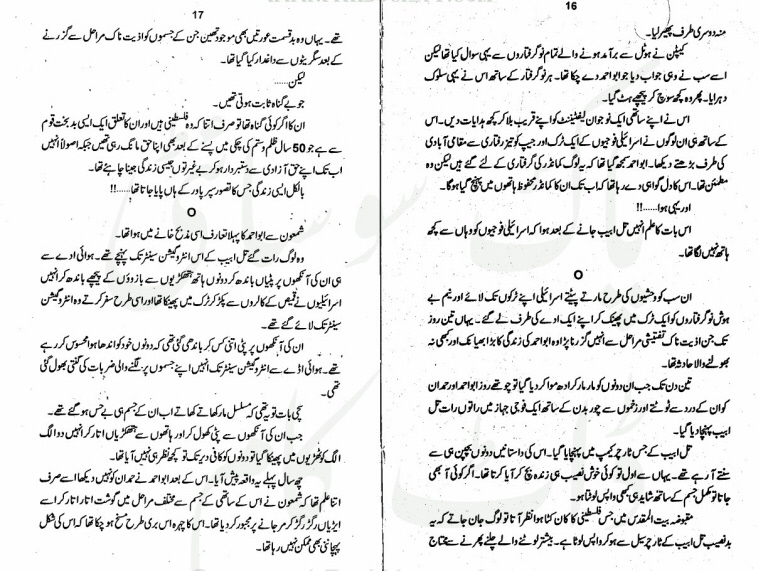 16
منہ دوسری طرف پھیر لیا۔
کیپٹن نے ہوٹل سے برآمد ہونے والے تمام نو گرفتاروں سے یہی سوال کیا تھا لیکن
اسے سب نے وہی جواب دیا جو ابواحمد دے چکا تھا۔ ہر نو گرفتار کے ساتھ اس نے یہی سلوک
دہرایا۔ پھر وہ کچھ سوچ کر پیچھے ہٹ گیا۔
اس نے اپنے ساتھی ایک نوجوان لیفٹیننٹ کو اپنے قریب بلا کر کچھ ہدایات دیں۔ اس
کے ساتھ ہی ان لوگوں نے اسرائیلی فوجیوں کے ایک ٹرک اور جیپ کو تیز رفتاری سے مقامی آبادی
کی طرف بڑھتے دیکھا۔ ابواحمد سمجھ گیا تھا کہ یہ لوگ کمانڈر کی گرفتاری کے لئے گئے ہیں لیکن وہ
مطمئن تھا۔ اس کا دل گواہی دے رہا تھا کہ اب تک ان کا کمانڈر محفوظ ہاتھوں میں پہنچ گیا ہوگا۔
اور یہی ہوا......!!
اس بات کا علم انہیں تل ابیب جانے کے بعد ہوا کہ اسرائیلی فوجیوں کو وہاں سے کچھ
ہاتھ نہیں لگا تھا۔
O
ان سب کو وحشیوں کی طرح مارتے پیٹتے اسرائیلی اپنے ٹرکوں تک لائے اور نیم بے
ہوش نو گرفتاروں کو ایک ٹرک میں پھینک کر اپنے ایک اڈے کی طرف لے گئے۔ یہاں تین روز
تک جن اذیت ناک تفتیشی مراحل سے انہیں گزرنا پڑا وہ ابواحمد کی زندگی کا بڑا بھیانک اور کبھی نہ
بھولنے والا حادثہ تھا۔
تین دن تک جب ان دونوں کو مار مار کر ادھ موا کر دیا گیا تو چوتھے روز ابواحمد اور حمدان
کو ان کے درد سے ٹوٹتے اور زخموں سے چور بدن کے ساتھ ایک فوجی جہاز میں راتوں رات تل
ابیب پہنچا دیا گیا۔
تل ابیب کے جس ٹارچر کیمپ میں پہنچایا گیا۔ اس کی داستانیں دونوں بچپن ہی سے
سنتے آ رہے تھے۔ یہاں سے اول تو کوئی خوش نصیب ہی زندہ بچ کر آیا کرتا تھا۔ اگر کوئی آ بھی
جاتا تو مکمل جسم کے ساتھ شاید ہی کبھی واپس لوٹا ہو۔
مقبوضہ بیت المقدس میں جس فلسطینی کا کان کٹا ہوا نظر آتا تو لوگ جان جاتے کہ یہ
بدنصیب تل ابیب کے ٹارچر سیل سے ہو کر واپس لوٹا ہے۔ بیشتر لوٹنے والے چلنے پھرنے سے محتاج
17
تھے۔ یہاں وہ بدقسمت عورتیں بھی موجود تھیں جن کے جسموں کو اذیت ناک مراحل سے گزرنے
کے بعد سگریٹوں سے داغدار کیا گیا تھا۔
لیکن......
جو بے گناہ ثابت ہوتی تھیں۔
ان کا اگر کوئی گناہ تھا تو صرف اتنا کہ وہ فلسطینی ہیں اور ان کا تعلق ایک ایسی بدبخت قوم
سے ہے جو 50 سال ظلم و ستم کی چکی میں پسنے کے بعد بھی اپنا حق مانگ رہی تھیں جبکہ اصولاً انہیں
اب تک اپنے حق آزادی سے دستبردار ہو کر بے غیرتوں جیسی زندگی جینا چاہئے تھا۔
بالکل ایسی زندگی جس کا تصور سپر پاور کے ہاں پایا جاتا تھا......!!
O
شمعون سے ابواحمد کا پہلا تعارف اسی مذبح خانے میں ہوا تھا۔
وہ لوگ رات گئے تل ابیب کے اس انٹروگیشن سینٹر تک پہنچے تھے۔ ہوائی اڈے سے
ہی ان کی آنکھوں پر پٹیاں باندھ کر دونوں ہاتھ ہتھکڑیوں سے بازوؤں کے پیچھے باندھ کر انہیں
اسرائیلیوں نے قمیص کے کالروں سے پکڑ کر ٹرک میں پھینکا تھا اور اسی طرح سفر کرتے وہ انٹروگیشن
سینٹر تک لائے گئے تھے۔
ان کی آنکھوں پر پٹی اتنی کس کر باندھی گئی تھی کہ دونوں خود کو اندھا ہوا محسوس کر رہے
تھے۔ ہوائی اڈے سے انٹروگیشن سینٹر تک انہیں اپنے جسموں پر لگنے والی ضربات کی گنتی بھول گئی
تھی۔
سچی بات تو یہ تھی کہ مسلسل مار کھاتے کھاتے اب ان کے جسم ہی بے حس ہو گئے تھے۔
جب ان کی آنکھوں سے پٹی کھول کر اور ہاتھوں سے ہتھکڑیاں اتار کر انہیں دو الگ
الگ کوٹھڑیوں میں پھینکا گیا تو دونوں کو کافی دیر تک تو کچھ نظر ہی نہیں آیا تھا۔
چھ سال پہلے یہ واقعہ پیش آیا۔ اس کے بعد ابواحمد نے حمدان کو نہیں دیکھا اسے صرف
اتنا علم تھا کہ شمعون نے اس کے ساتھی کے جسم سے مختلف مراحل میں گوشت اتار اتار کر اسے
ایڑیاں رگڑ رگڑ کر مر جانے پر مجبور کر دیا تھا۔ اس کا چہرہ اس بری طرح مسخ ہو چکا تھا کہ اس کی شکل
پہچاننی بھی ممکن نہیں رہا تھا۔